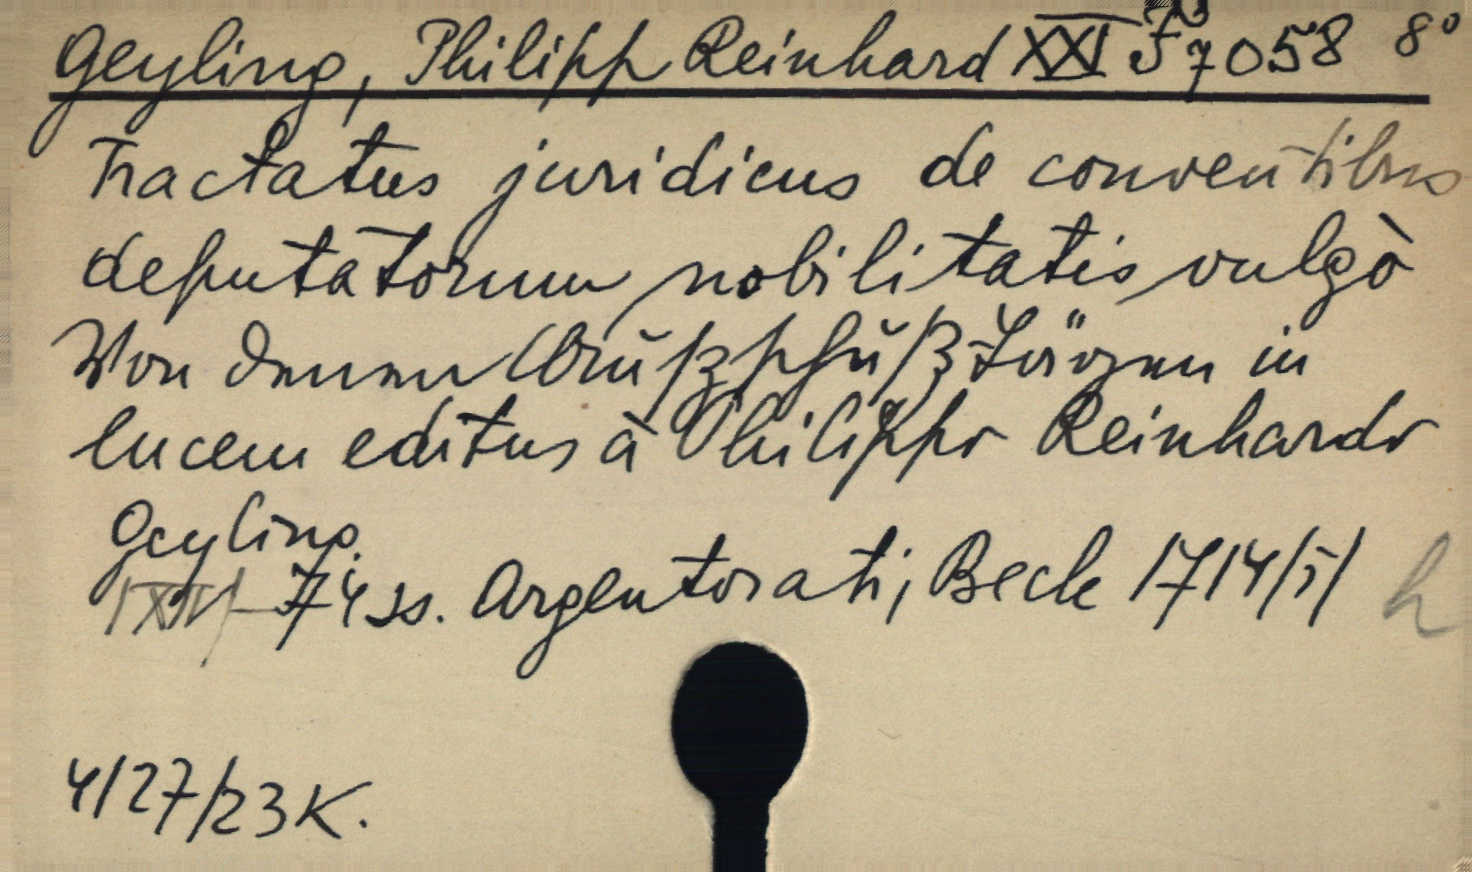 Geyling, Philipp Reinhard XXI F 7058 8°
Tractatus juridicus de conventibus
deputatorum nobilitatis vulgò
Von denen Außschuß Tägen in
lucem editus à Philippo Reinhardo
Geyling.
74 ss. Argentorati, Beck 1714/5/ h
4/27/23 K.